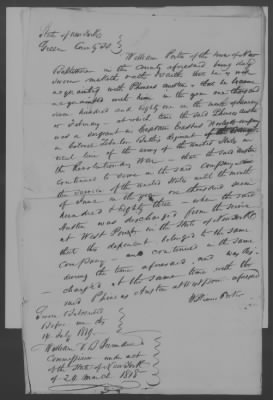 State of New York
Green County SS.
William Porter of the town of New
in the county aforesaid being duly
sworn maketh oath & saith that he is well
acquainted with Phineas Austin & that he became
acquainted with him in the year one thousand
seven hundred and eighty one in the month of January
or February - at which time the said Phineas Austin
was a sergeant in Captain company
in Colonel John Regiment
line of the army of the United States in
the Revolutionary War - that the said Austin
continued to serve in the said company &
the service of the United States until the month
of June in the year one thousand seven
hundred & eighty three - when the said
Austin was discharged from the service
at West Point in the State of New York
that this deponent belonged to the same
company - and continued in the same
during the time aforesaid - and was dis-
charged at the same time with the
said Phineas Austin at West point aforesaid
William Porter
Sworn & subscribed
Before me this
14 July 1819.
William V. B.
Commissioner under act
of the State of New York
of 24 March 1818